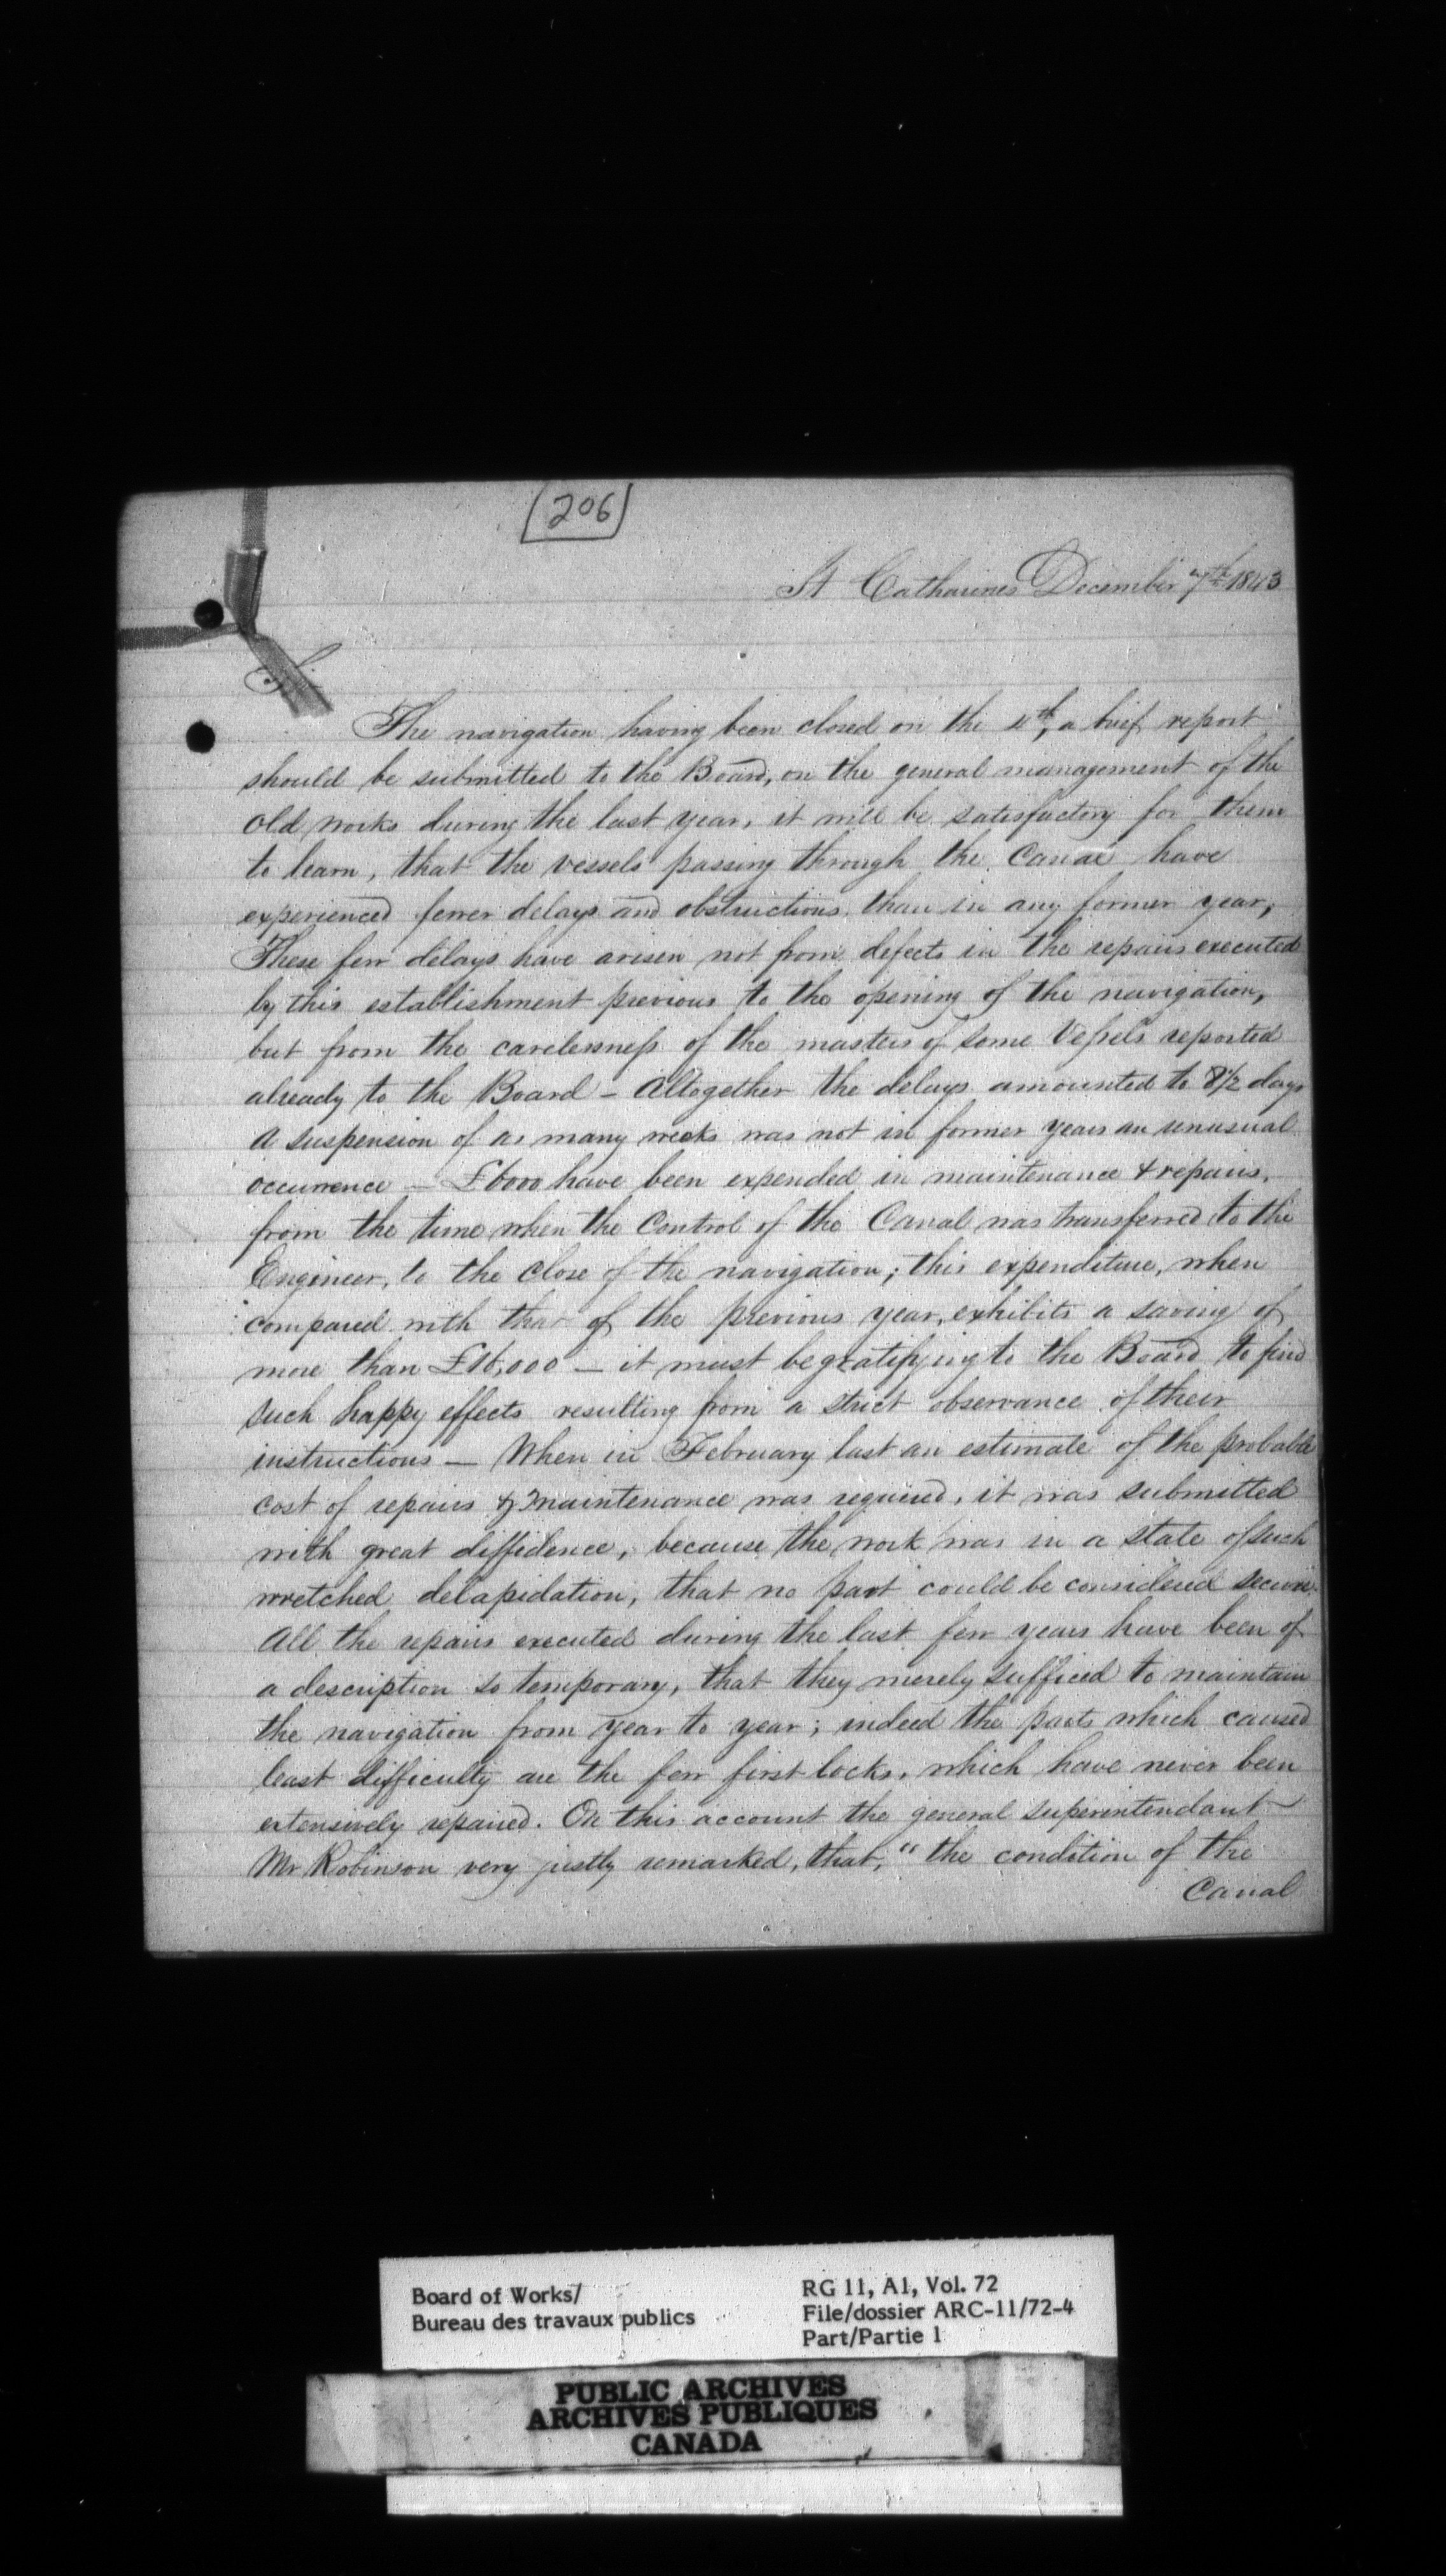 206
St Catharines December 7th 1843
Sir
The navigation having been closed on the 4th, a brief report
should be submitted to the Board, on the general management of the
old works during the last year, it will be satisfactory for them
to learn, that the vessels passing through the Canal have
experienced fewer delays and obstructions, than in any former year,
These few delays have arisen not from defects in the repairs executed
by this establishment previous to the opening of the navigation,
but from the carelessness of the masters of some Vessels reported
already to the Board – Altogether the delays amounted to 8½ days
A suspension of as many weeks was not in former years an unusual
occurrence – £6000 have been expended in maintenance & repairs,
from the time when the Control of the Canal was transferred to the
Engineer, to the close of the navigation; this expenditure, when
compared with that of the previous year, exhibits a saving of
more than £16,000 – it must be gratifying to the Board to find
such happy effects resulting from a strict observance of their
instructions – When in February last an estimate of the probable
cost of repairs & maintenance was required, it was submitted
with great diffidence, because the work was in a state of such
wretched delapidation, that no part could be considered secure.
All the repairs executed during the last few years have been of
a description so temporary, that they merely sufficed to maintain
the navigation from year to year; indeed the parts which caused
least difficulty are the few first locks, which have never been
extensively repaired. On this account the general superintendant
Mr Robinson very justly remarked, that, "the condition of the
Canal
Board of Works/
Bureau des travaux publics
RG 11, A1, Vol. 72
File/dossier ARC-11/72-4
Part/Partie 1
PUBLIC ARCHIVES
ARCHIVES PUBLIQUES
CANADA